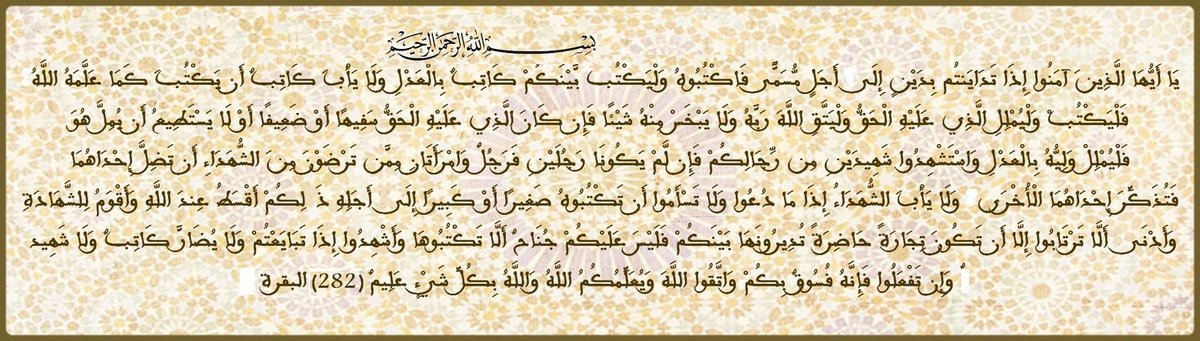 بسم الله الرحمن الرحيم
يَا أَيُّهَا الَّذِينَ آمَنُوا إِذَا تَدَايَنتُم بِدَيْنٍ إِلَى أَجَلٍ مُّسَمًّى فَاكْتُبُوهُ وَلْيَكْتُب بَّيْنَكُمْ كَاتِبٌ بِالْعَدْلِ وَلَا يَأْبَ كَاتِبٌ أَن يَكْتُبَ كَمَا عَلَّمَهُ اللَّهُ
فَلْيَكْتُبْ وَلْيُمْلِلِ الَّذِي عَلَيْهِ الْحَقُّ وَلْيَتَّقِ اللَّهَ رَبَّهُ وَلَا يَبْخَسْ مِنْهُ شَيْئًا فَإِن كَانَ الَّذِي عَلَيْهِ الْحَقُّ سَفِيهًا أَوْ ضَعِيفًا أَوْ لَا يَسْتَطِيعُ أَن يُمِلَّ هُوَ
فَلْيُمْلِلْ وَلِيُّهُ بِالْعَدْلِ وَاسْتَشْهِدُوا شَهِيدَيْنِ مِن رِّجَالِكُمْ فَإِن لَّمْ يَكُونَا رَجُلَيْنِ فَرَجُلٌ وَامْرَأَتَانِ مِمَّن تَرْضَوْنَ مِنَ الشُّهَدَاءِ أَن تَضِلَّ إِحْدَاهُمَا
فَتُذَكِّرَ إِحْدَاهُمَا الْأُخْرَى وَلَا يَأْبَ الشُّهَدَاءُ إِذَا مَا دُعُوا وَلَا تَسْأَمُوا أَن تَكْتُبُوهُ صَغِيرًا أَوْ كَبِيرًا إِلَى أَجَلِهِ ذَلِكُمْ أَقْسَطُ عِندَ اللَّهِ وَأَقْوَمُ لِلشَّهَادَةِ
وَأَدْنَى أَلَّا تَرْتَابُوا إِلَّا أَن تَكُونَ تِجَارَةً حَاضِرَةً تُدِيرُونَهَا بَيْنَكُمْ فَلَيْسَ عَلَيْكُمْ جُنَاحٌ أَلَّا تَكْتُبُوهَا وَأَشْهِدُوا إِذَا تَبَايَعْتُمْ وَلَا يُضَارَّ كَاتِبٌ وَلَا شَهِيد
ٌ وَإِن تَفْعَلُوا فَإِنَّهُ فُسُوقٌ بِكُمْ وَاتَّقُوا اللَّهَ وَيُعَلِّمُكُمُ اللَّهُ وَاللَّهُ بِكُلِّ شَيْءٍ عَلِيمٌ (282) البقرة